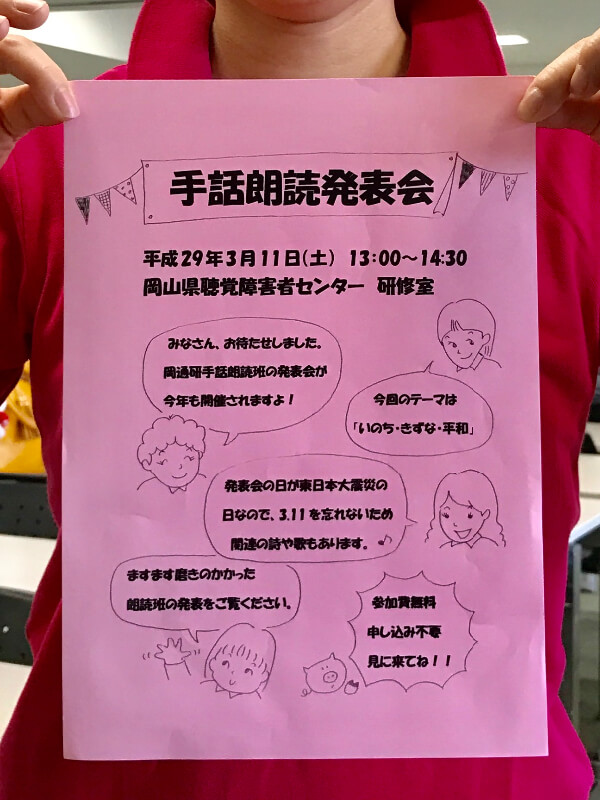 手話朗読発表会
平成29年3月11日(土) 13:00～14:30
岡山県聴覚障害者センター 研修室
みなさん、お待たせしました。
岡通研手話朗読班の発表会が
今年も開催されますよ！
今回のテーマは
「いのち・きずな・平和」
発表会の日が東日本大震災の
日なので、3.11を忘れないため
関連の詩や歌もあります。
ますます磨きのかかった
朗読班の発表をご覧ください。
参加費無料
申し込み不要
見に来てね！！